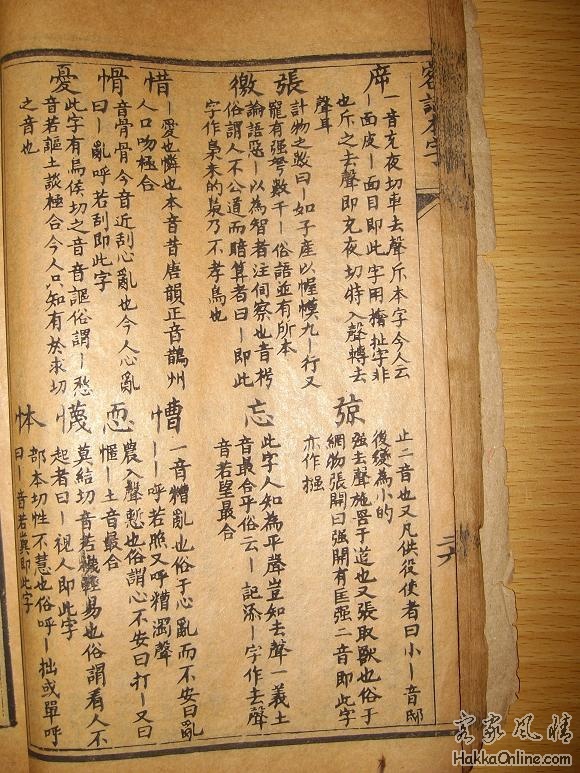 客話本字
席
一音充夜切車去聲斥本字今人云
—面皮—面目即此字用撦扯字非
也斥之去聲即充夜切特入聲轉去
聲耳
張
計物之數曰—如子產以幄幙九—行又
寵有强弩數千—俗語並有所本
徼
論語惡—以為智者注伺察也音梟
俗謂人不公道而暗算者曰—即此
字作梟來的梟乃不孝鳥也
惜
—愛也憐也本音昔唐韻正音鵲州
人口吻極合
愲
音骨骨今音近刮心亂也今人心亂
曰—亂呼若刮即此字
憂
此字有烏侯切之音音謳俗謂—愁
音若謳土談極合今人只知有於求切
之音也
止二音也又凡供役使者曰小—音邸
後變為小的
弶
强去聲施罟于道也又張取獸也俗于
網物張開曰强開有匡强二音即此字
亦作摾
忘
此字人知為平聲豈知去聲一義土
音最合平俗云—記添—字作去聲
音若望最合
慒
一音糟亂也俗于心亂而不安曰亂
——呼若照又呼糟濁聲
恧
農入聲慙也俗謂心不安曰打—又曰
—土音最合
懱
莫結切音若 輕易也俗謂看人不
起者曰—視人即此字
体
部本切性不慧也俗呼—拙或單呼
曰—音若糞即此字
二六
客家風情
HakkaOnline.com